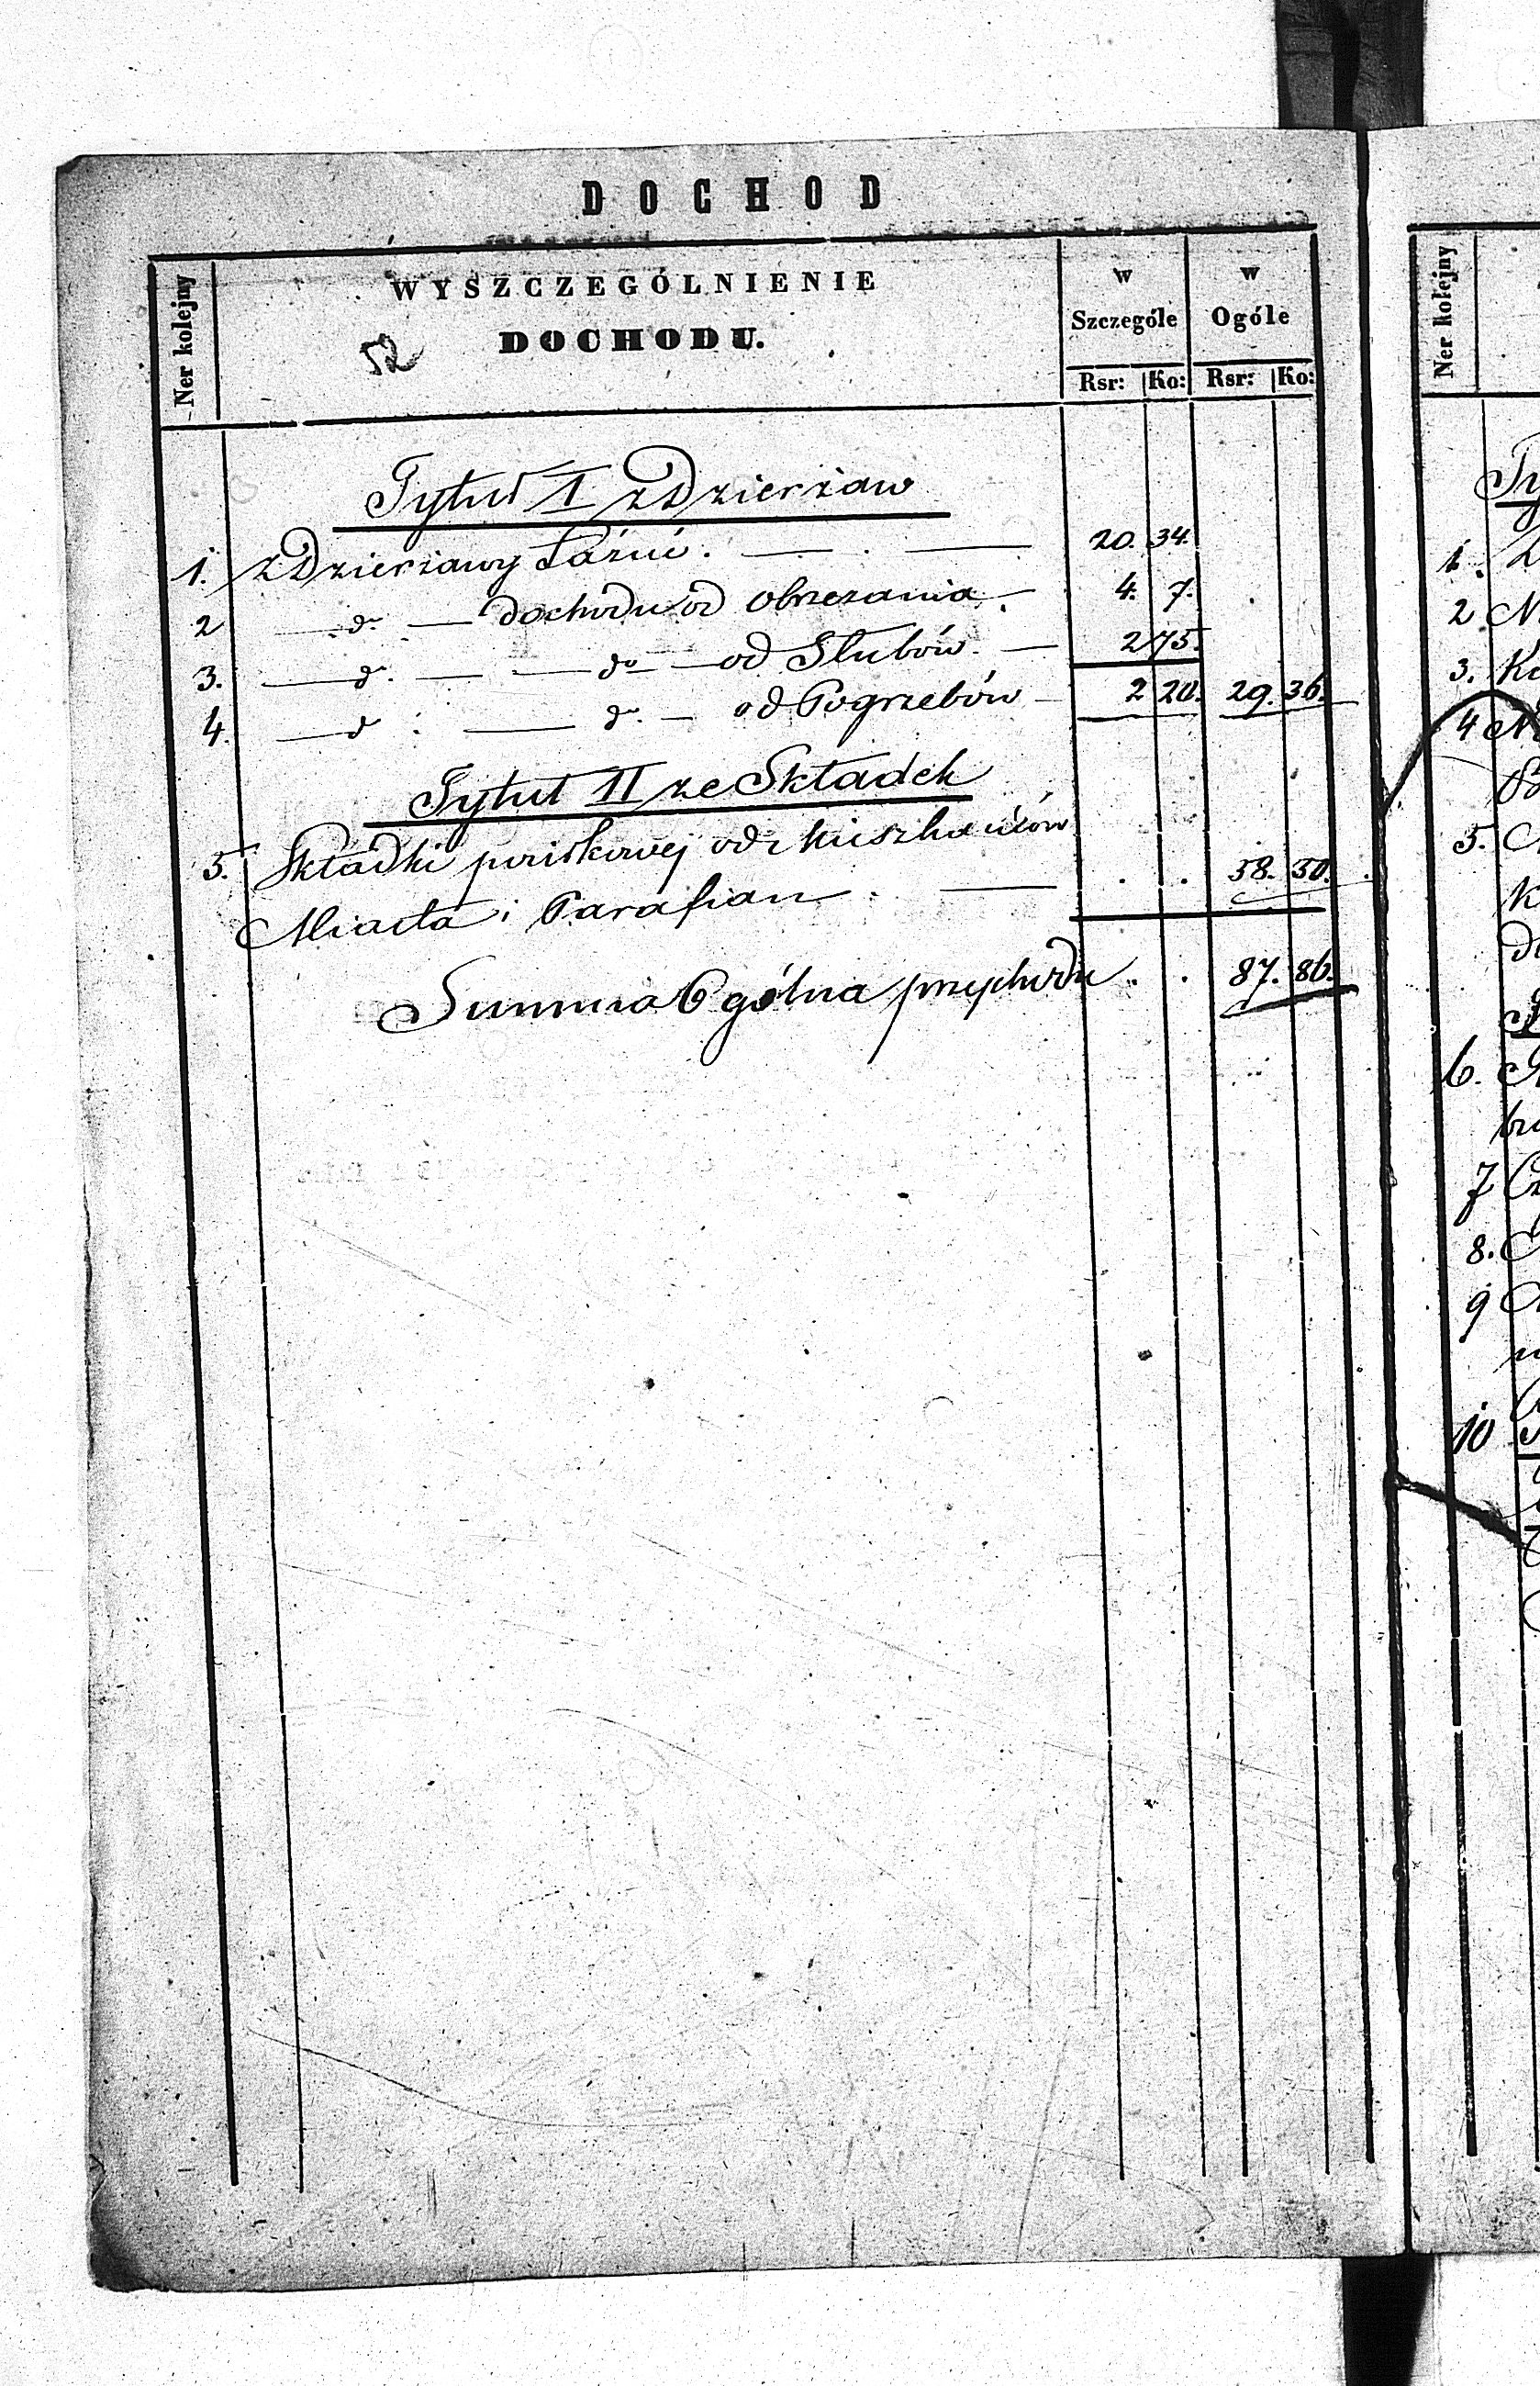 DOCHOD
Ner kolejny
WYSZCZEGÓLNIENIE
DOCHODU.
52
w Szczególe
w Ogóle
Rsr: Ko: Rsr: Ko:
Tytuł I z Dzierżaw
1. z Dzierżawy Łaźni. 20. 34.
2 — do — dochodu od obrzezania 4. 7.
3. — do. — — do — od Slubów. — 2 75.
4. — d : — do. — od Pogrzebów — 2 20. 29. 36.
Tytuł II ze Składek
5. Składki od Mieszkańców
Miasta i Parafian . — . . 58. 50.
Summa Ogólna przychodu . . 87. 86.
Ner kolejny
1.
2
3.
4
5.
6.
7
8.
9
10